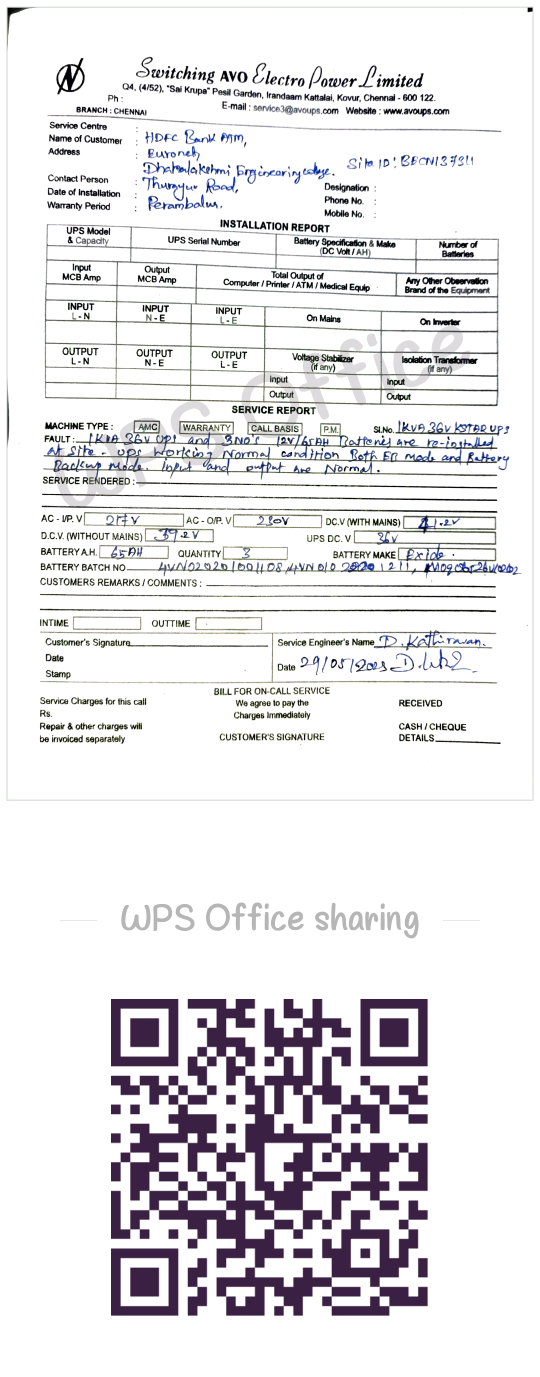 Switching AVO Electro Power Limited
Q4, (4/52), "Sai Krupa" Pesil Garden, Irandaam Kattalai, Kovur, Chennai - 600 122.
Ph :
E-mail : service3@avoups.com Website : www.avoups.com
BRANCH : CHENNAI
Service Centre :
Name of Customer : HDFC Bank ATM,
Address : Euronet,
Dhanalakshmi Engineering college. Site ID:
Contact Person : Thuraiyur Road,
Designation :
Date of Installation : Perambalur.
Phone No. :
Warranty Period :
Mobile No. :
INSTALLATION REPORT
UPS Model & Capacity
UPS Serial Number
Battery Specification & Make (DC Volt / AH)
Number of Batteries
Input MCB Amp
Output MCB Amp
Total Output of Computer / Printer / ATM / Medical Equip
Any Other Observation Brand of the Equipment
INPUT L - N
INPUT N - E
INPUT L - E
On Mains
On Inverter
OUTPUT L - N
OUTPUT N - E
OUTPUT L - E
Voltage Stabilizer (if any)
Isolation Transformer (if any)
Input
Input
Output
Output
WPS Office
SERVICE REPORT
MACHINE TYPE : AMC WARRANTY CALL BASIS P.M. Sl.No. 1KVA 36V KSTAR UPS
FAULT : 1KVA 36V UPS and 3NO's 12V/65AH Batteries are re-installed
at site. UPS working Normal condition Both EB mode and Battery
Backup mode. Input and output are Normal.
SERVICE RENDERED :
AC - I/P. V 217V AC - O/P. V 230V DC.V (WITH MAINS) 41.2V
D.C.V. (WITHOUT MAINS) 39.2V UPS DC. V 36V
BATTERY A.H. 65AH QUANTITY 3 BATTERY MAKE Exide.
BATTERY BATCH NO
CUSTOMERS REMARKS / COMMENTS :
INTIME OUTTIME
Customer's Signature
Service Engineer's Name D. Kathiravan.
Date
Date 29/05/2023
Stamp
BILL FOR ON-CALL SERVICE
Service Charges for this call We agree to pay the RECEIVED
Rs. Charges Immediately
Repair & other charges will CASH / CHEQUE
be invoiced separately CUSTOMER'S SIGNATURE DETAILS
WPS Office sharing